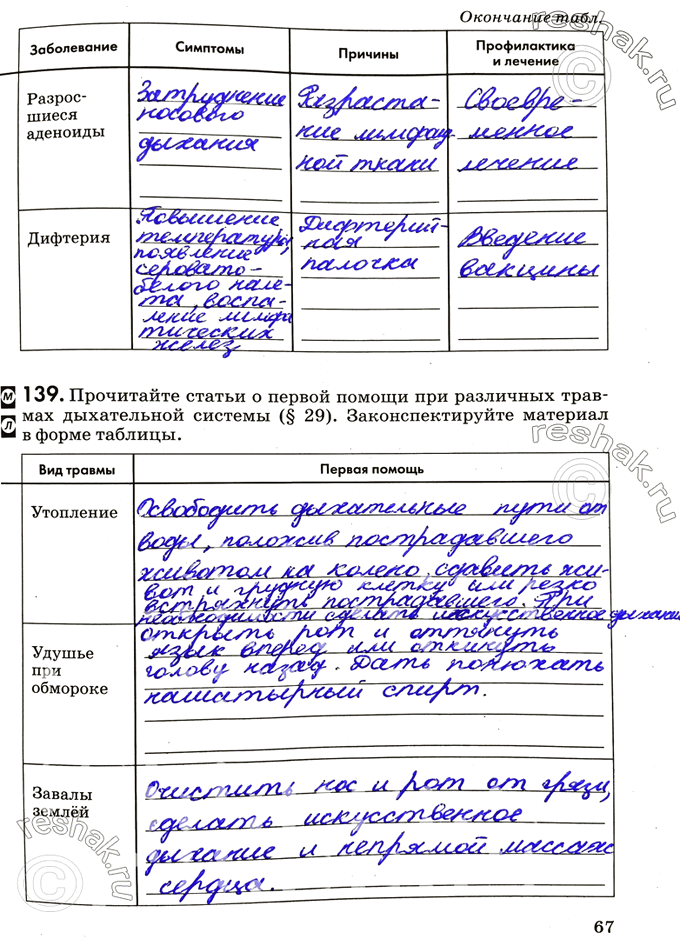 Окончание табл.
Заболевание
Симптомы
Причины
Профилактика
и лечение
Разрос-
шиеся
аденоиды
Затруднение
носового
дыхания
Разраста-
ние лимфоид-
ной ткани
Своевре-
менное
лечение
Дифтерия
Повышение
температуры,
появление
серовато-
белого нале-
та, воспа-
ление лимфа
тических
желез
Дифтерий-
ная
палочка
Введение
вакцины
М
Л
139. Прочитайте статьи о первой помощи при различных трав-
мах дыхательной системы (§ 29). Законспектируйте материал
в форме таблицы.
Вид травмы
Первая помощь
Утопление
Освободить дыхательные пути от
воды, положив пострадавшего
животом на колено, сдавить жи-
вот и грудную клетку или резко
встряхнуть пострадавшего. При
необходимости сделать искусственное дыхание
Удушье
при
обмороке
открыть рот и оттянуть
язык вперед или откинуть
голову назад. Дать понюхать
нашатырный спирт.
Завалы
землёй
Очистить нос и рот от грязи,
сделать искусственное
дыхание и непрямой массаж
сердца.
67
reshak.ru
reshak.ru
reshak.ru
reshak.ru